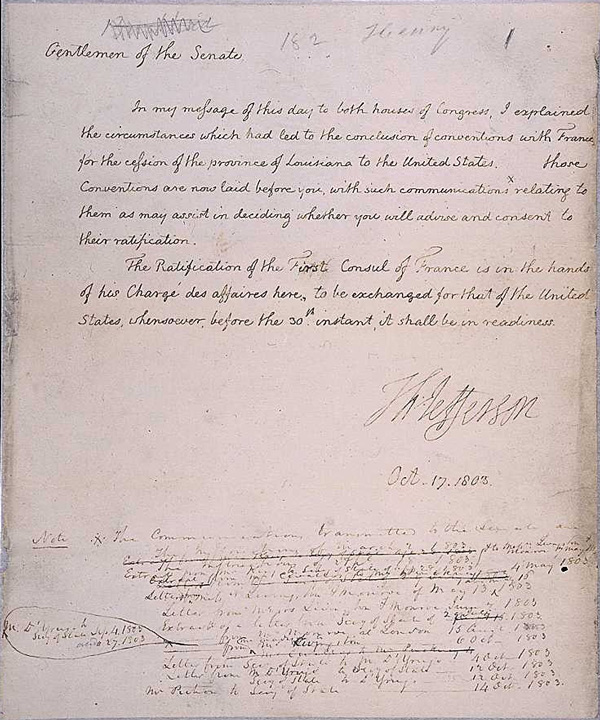 182 Henry 1
Gentlemen of the Senate
In my message of this day to both houses of Congress, I explained
the circumstances which had led to the conclusion of conventions with France,
for the cession of the province of Louisiana to the United States. those
Conventions are now laid before you, with such communications x relating to
them as may assist in deciding whether you will advise and consent to
their ratification.
The Ratification of the First Consul of France is in the hands
of his Chargé des affaires here, to be exchanged for that of the United
States, whensoever, before the 30th instant, it shall be in readiness.
Th: Jefferson
Oct. 17. 1803.
Note x The Communications transmitted to the Senate are
4 May 1803
Letter from Livingston & Monroe of May 13
Letter from Messrs Livingston & Monroe June 7 1803
Extract of a letter Secy of State 1803
at London 15 Aug 1803
M. D'Yrujo to
Secy of State Sept. 4. 1803
and 27. 1803
from Mr Livingston
Letter from Secy of State to M D'Yrujo 4 Oct 1803
Letter from M D'Yrujo to Secy of State 12 Oct 1803
Secy of State to D'Yrujo
Mr Pichon to Secy of State 14 Oct. 1803